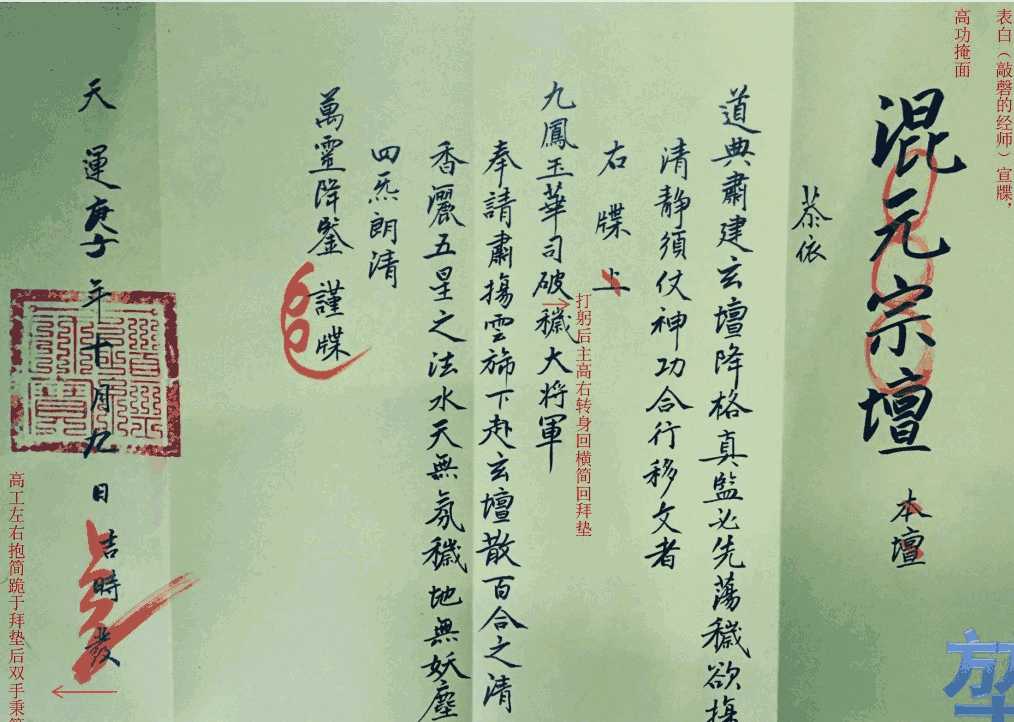 表白（敲磬的经师）宣牒，
高功掩面
混元宗壇 本壇
恭依
道典肅建玄壇降格真監必先蕩穢欲
清静須仗神功合行移文者
右牒上
九鳳玉華司破穢大將軍
打躬后主高右转身回横简回拜垫
奉請肅揚雲斾下赴玄壇散百合之清
香灑五星之法水天無氛穢地無妖塵
四炁朗清
萬靈降鑒 謹牒
天運庚子年十月九日吉時發
高工左右抱简跪于拜垫后双手秉简